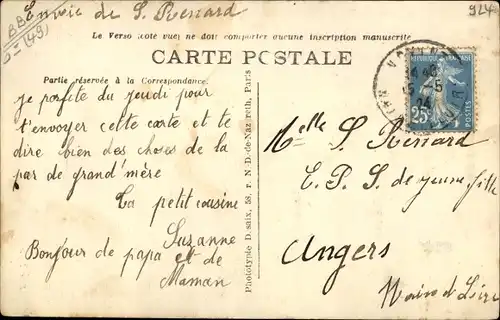 Envoie de S. Renard
924
ABB
(49)
Le Verso (côté vue) ne doit comporter aucune inscription manuscrite
CARTE POSTALE
Partie réservée à la Correspondance.
je porfite du jeudi pour
t'envoyer cette carte et te
dire bien des choses de la
par de grand'mère
Ta petit cousine
Suzanne
Bonjour de papa et de
Maman
Phototypie D.saix, 58, r. N.-D.-de-Nazareth, Paris
RÉPUBLIQUE FRANÇAISE
25c
POSTES
14 40
15 -5
24
Melle S. Renard
E. P. S. de jeune fille
Angers
Maine et Loire